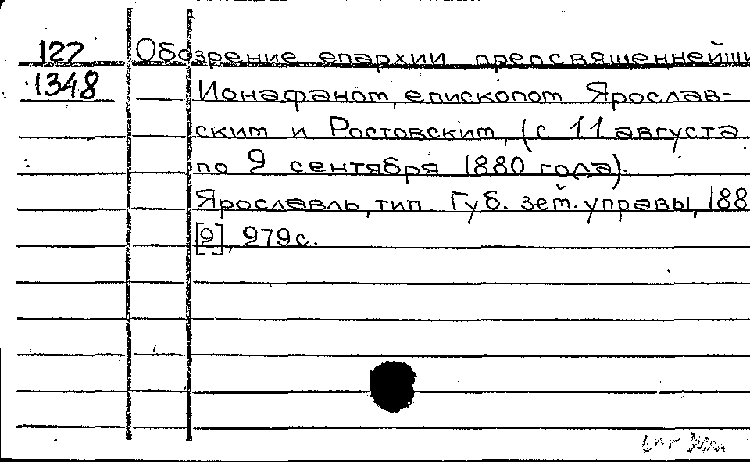 127 Обозрение епархии преосвященнейши
1348 Ионафаном, епископом Ярослав-
ским и Ростовским, (с 11 августа
по 9 сентября 1880 года).
Ярославль, тип. Губ. зем. управы, 188
[2], 279с.